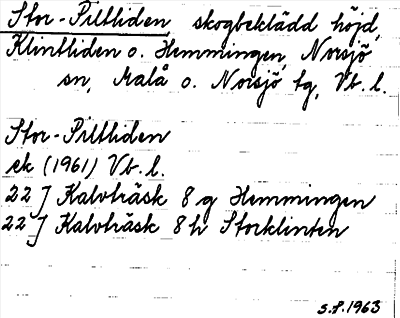 Stor-Piltliden, skogbeklädd höjd,
Klintliden o. Hemmingen, Norsjö
sn, Malå o. Norsjö tg, Vb. l.
Stor-Piltliden
ek (1961) Vb. l.
22 J Kalvträsk 8 g Hemmingen
22 J Kalvträsk 8 h Storklinten
S.f. 1963